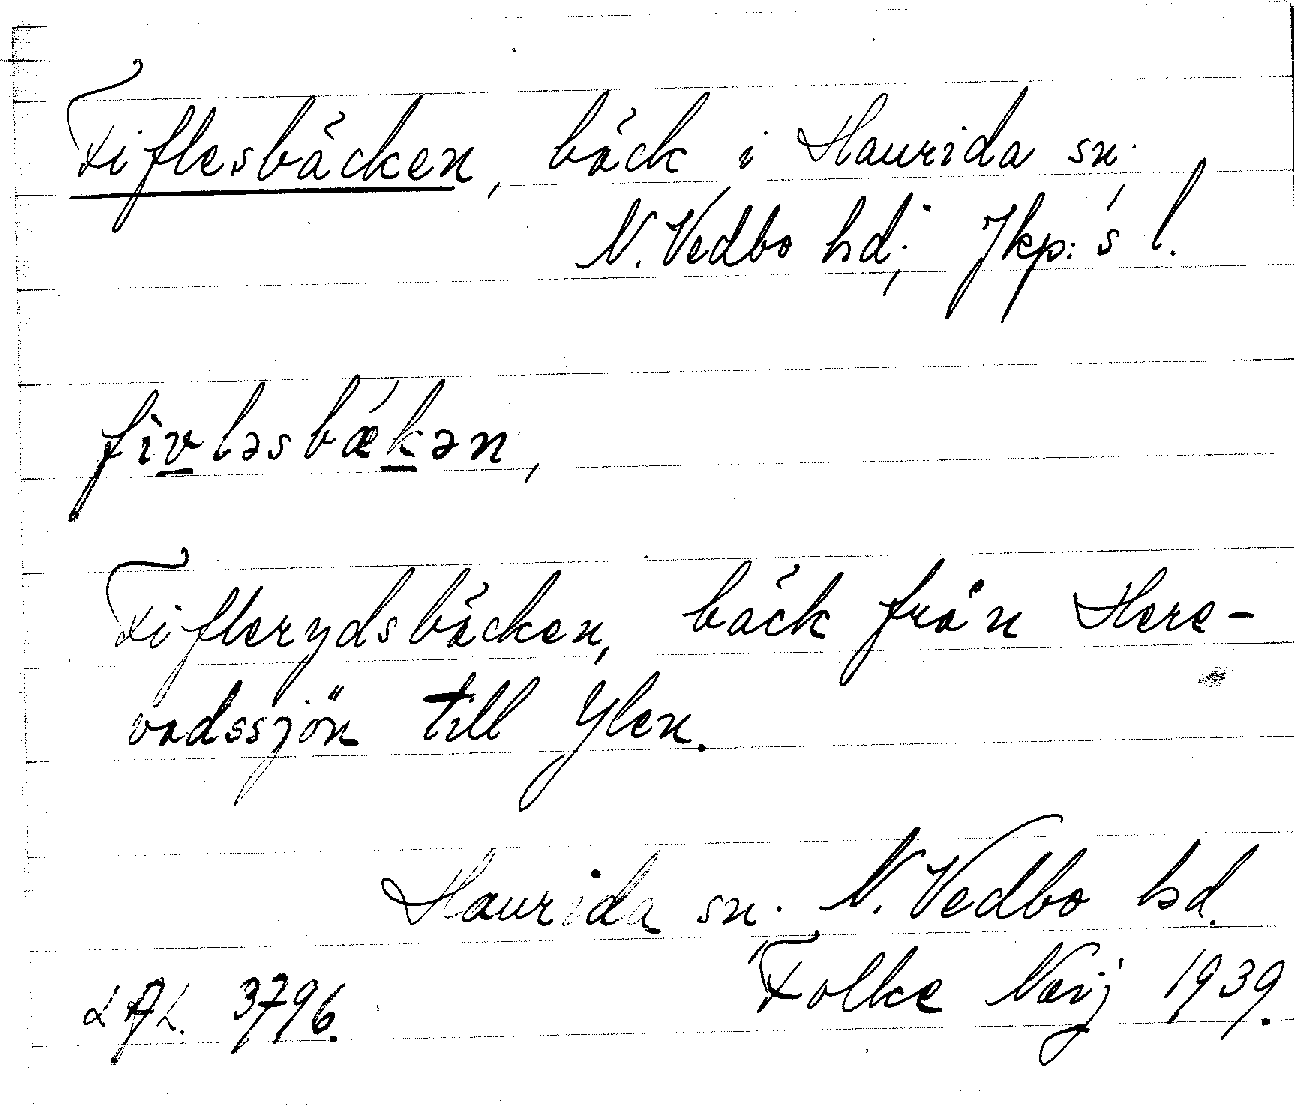 Fiflesbäcken, bäck i Haurida sn.
N. Vedbo hd; Jkp:s l.
fìv̲ləsbǽk̲ən,
Fiflerydsbäcken, bäck från Here-
vadssjön till Ylen.
Haurida sn. N. Vedbo hd.
Folke Neij 1939.
LAL. 3796.